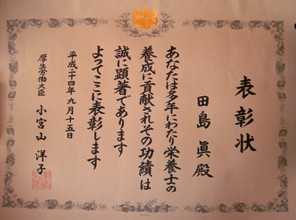 表彰状
田島 眞 殿
あなたは多年にわたり栄養士の
養成に貢献されその功績は
誠に顕著であります
よってここに表彰します
平成二十四年九月十五日
厚生労働大臣 小宮山 洋子